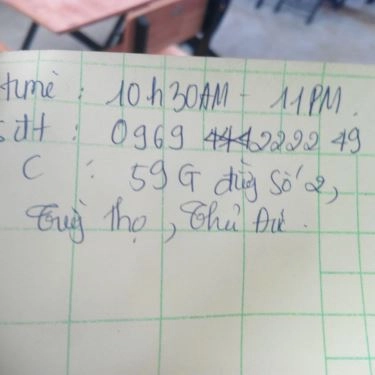 time : 10h30AM - 11PM.
sđt : 0969 2222 49
C : 59G đường Số 2,
Trường Thọ, Thủ Đức.